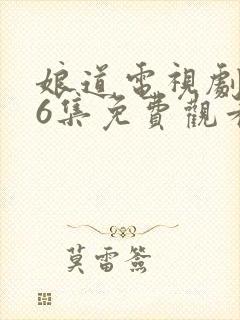 娘道電視劇
6集免費觀看
莫雷簽